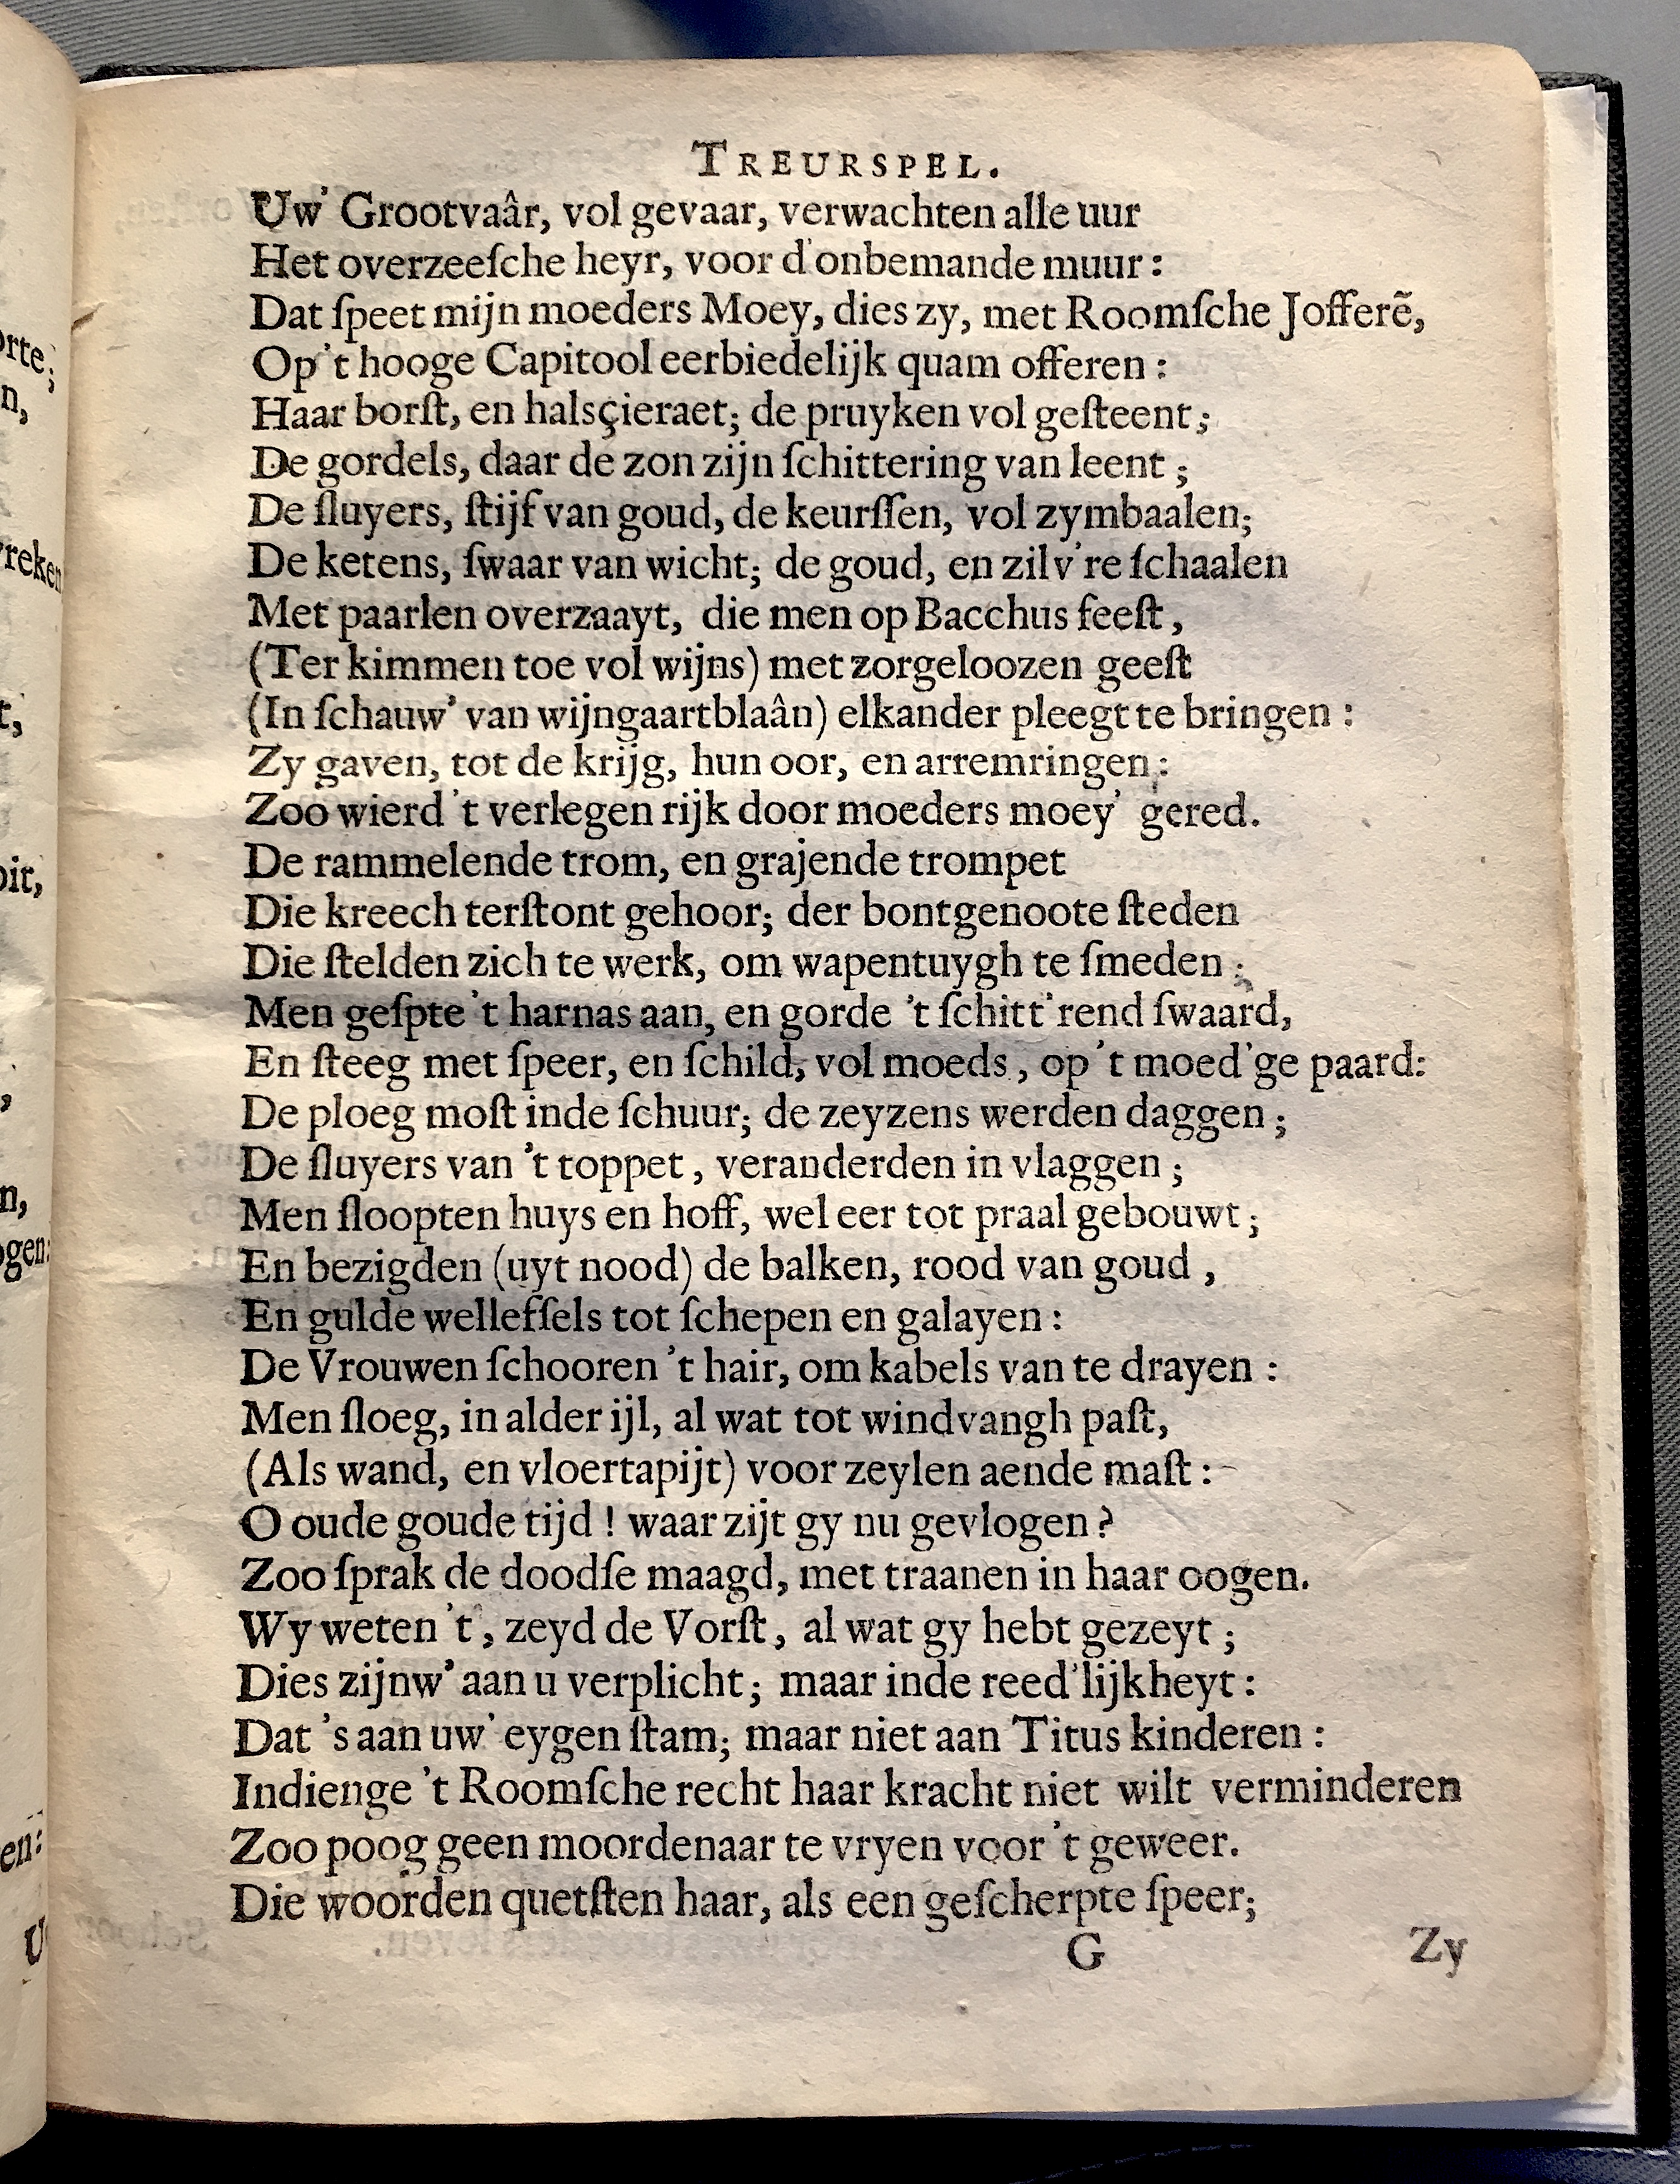 TREURSPEL.
Uw' Grootvaâr, vol gevaar, verwachten alle uur
Het overzeeſche heyr, voor d'onbemande muur:
Dat ſpeet mijn moeders Moey, dies zy, met Roomſche Jofferẽ,
Op 't hooge Capitool eerbiedelijk quam offeren:
Haar borſt, en halsçieraet; de pruyken vol geſteent;
De gordels, daar de zon zijn ſchittering van leent;
De ſluyers, ſtijf van goud, de keurſſen, vol zymbaalen;
De ketens, ſwaar van wicht; de goud, en zilv're ſchaalen
Met paarlen overzaayt, die men op Bacchus feeſt,
(Ter kimmen toe vol wijns) met zorgeloozen geeſt
(In ſchauw' van wijngaartblaân) elkander pleegt te bringen:
Zy gaven, tot de krijg, hun oor, en arremringen:
Zoo wierd 't verlegen rijk door moeders moey' gered.
De rammelende trom, en grajende trompet
Die kreech terſtont gehoor; der bontgenoote ſteden
Die ſtelden zich te werk, om wapentuygh te ſmeden;
Men geſpte 't harnas aan, en gorde 't ſchitt'rend ſwaard,
En ſteeg met ſpeer, en ſchild, vol moeds, op 't moed'ge paard:
De ploeg moſt inde ſchuur; de zeyzens werden daggen;
De ſluyers van 't toppet, veranderden in vlaggen;
Men ſloopten huys en hoff, wel eer tot praal gebouwt;
En bezigden (uyt nood) de balken, rood van goud,
En gulde welleſſels tot ſchepen en galayen:
De Vrouwen ſchooren 't hair, om kabels van te drayen:
Men ſloeg, in alder ijl, al wat tot windvangh paſt,
(Als wand, en vloertapijt) voor zeylen aende maſt:
O oude goude tijd! waar zijt gy nu gevlogen?
Zoo ſprak de doodſe maagd, met traanen in haar oogen.
Wy weten 't, zeyd de Vorſt, al wat gy hebt gezeyt;
Dies zijnw' aan u verplicht; maar inde reed'lijkheyt:
Dat 's aan uw' eygen ſtam; maar niet aan Titus kinderen:
Indienge 't Roomſche recht haar kracht niet wilt verminderen
Zoo poog geen moordenaar te vryen voor 't geweer.
Die woorden quetſten haar, als een geſcherpte ſpeer;
G Zy